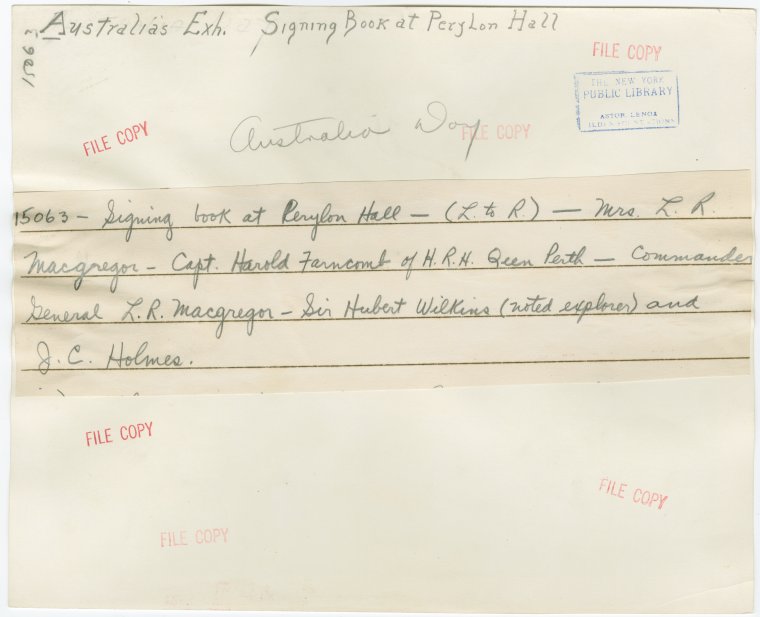 Australia's Exh. Signing Book at Perylon Hall
1269
FILE COPY
THE NEW YORK
PUBLIC LIBRARY
ASTOR LENOX
TILDEN FOUNDATIONS
FILE COPY
Australia Day
FILE COPY
15063 - Signing book at Perylon Hall - (L. to R.) - Mrs. L. R.
Macgregor - Capt. Harold Farncomb of H.R.H. Qeen Perth - Commander
General L.R. Macgregor - Sir Hubert Wilkins (noted explorer) and
J.C. Holmes.
FILE COPY
FILE COPY
FILE COPY